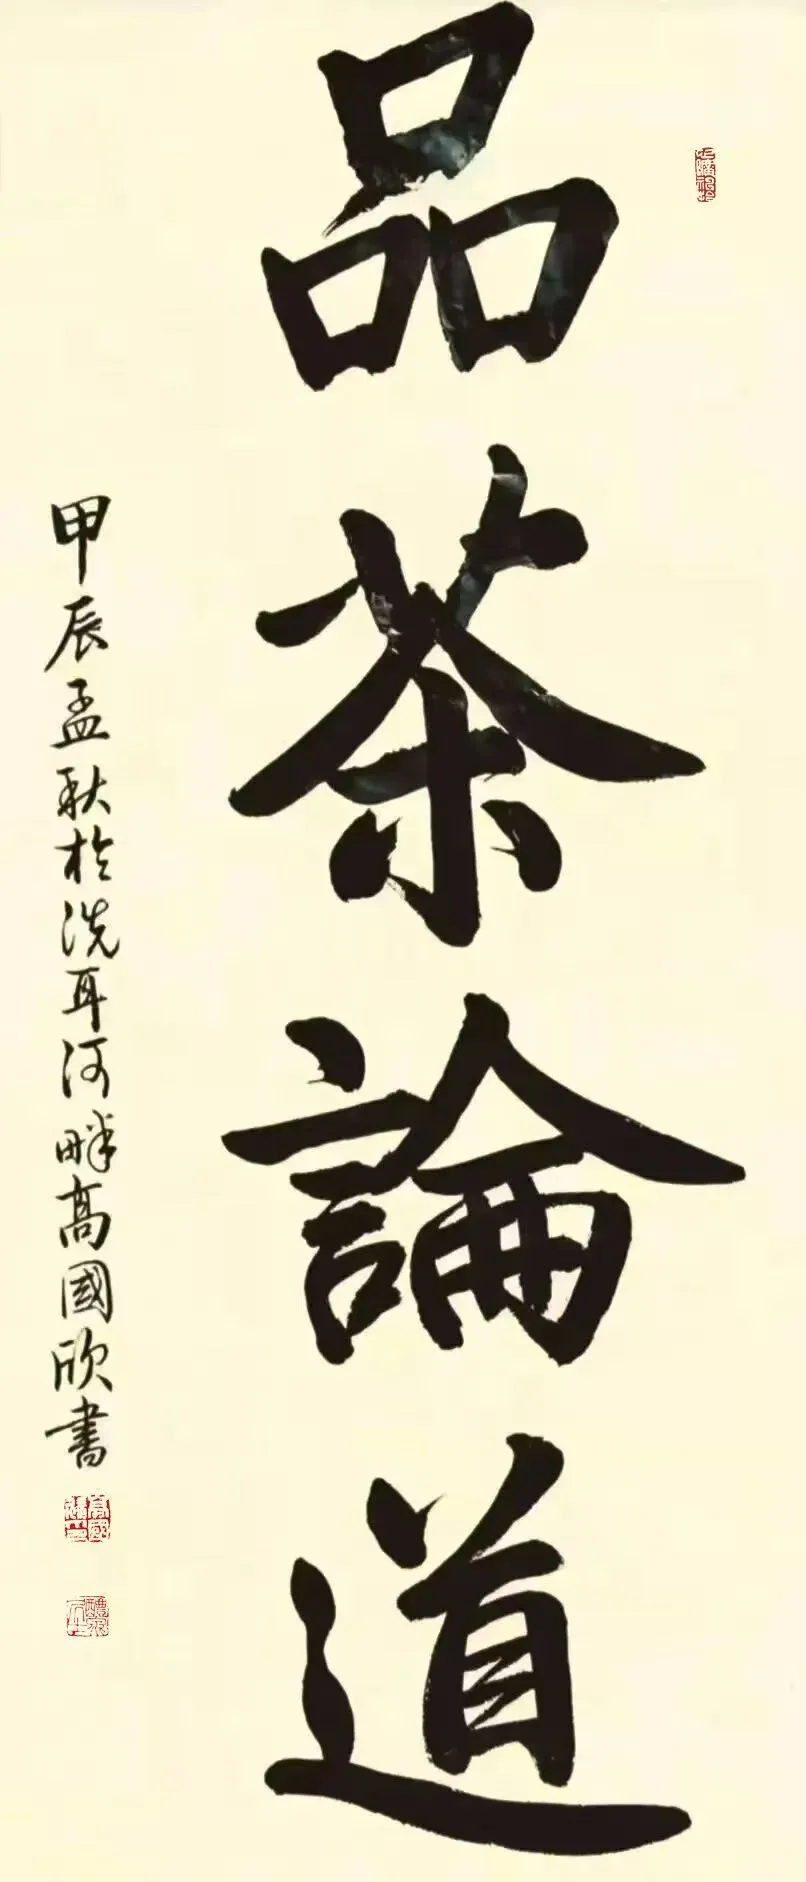 品茶論道
甲辰孟秋於洗耳河畔高國欣書